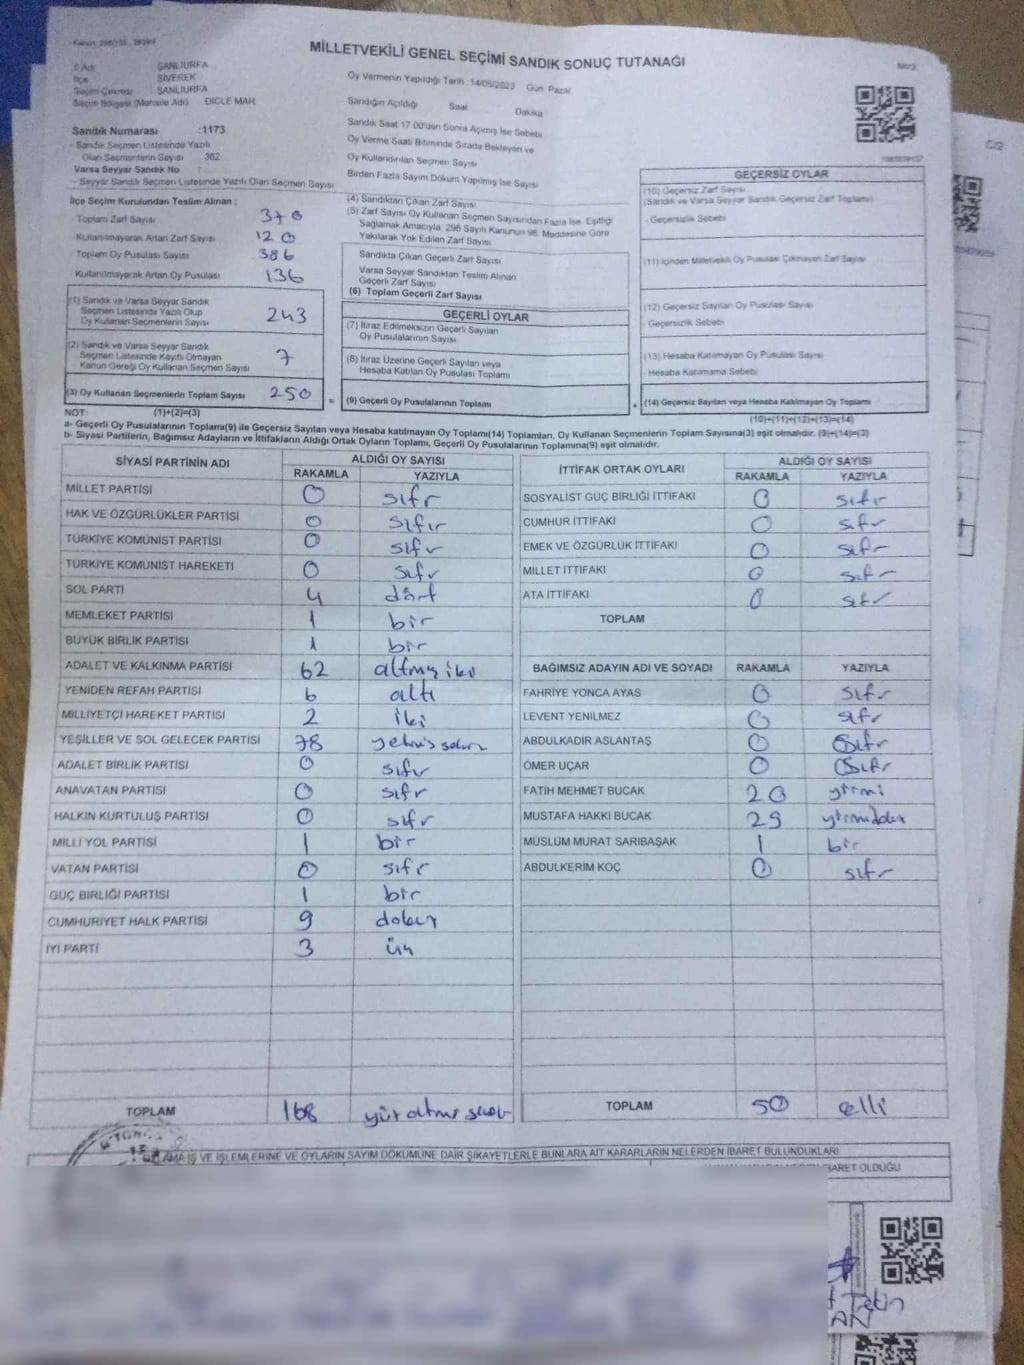 MİLLETVEKİLİ GENEL SEÇİMİ SANDIK SONUÇ TUTANAĞI
İl Adı ŞANLIURFA
İlçe SİVEREK
Seçim Çevresi ŞANLIURFA
Seçim Bölgesi (Mahalle Adı) DİCLE MAH.
Oy Vermenin Yapıldığı Tarih :14/05/2023 Gün: Pazar
Sandığın Açıldığı Saat Dakika
Sandık Saat 17.00'den Sonra Açılmış İse Sebebi
Oy Verme Saati Bitiminde Sırada Bekleyen ve
Oy Kullandırılan Seçmen Sayısı
Birden Fazla Sayım Döküm Yapılmış İse Sayısı
Sandık Numarası :1173
- Sandık Seçmen Listesinde Yazılı
Olan Seçmenlerin Sayısı 362
Varsa Seyyar Sandık No
- Seyyar Sandık Seçmen Listesinde Yazılı Olan Seçmen Sayısı
İlçe Seçim Kurulundan Teslim Alınan :
- Toplam Zarf Sayısı 370
Kullanılmayarak Artan Zarf Sayısı 120
- Toplam Oy Pusulası Sayısı 386
Kullanılmayarak Artan Oy Pusulası 136
(1) Sandık ve Varsa Seyyar Sandık
Seçmen Listesinde Yazılı Olup
Oy Kullanan Seçmenlerin Sayısı 243
(2) Sandık ve Varsa Seyyar Sandık
Seçmen Listesinde Kayıtlı Olmayan
Kanun Gereği Oy Kullanan Seçmen Sayısı 7
(3) Oy Kullanan Seçmenlerin Toplam Sayısı 250
(4) Sandıktan Çıkan Zarf Sayısı
(5) Zarf Sayısı Oy Kullanan Seçmen Sayısından Fazla İse, Eşitliği
Sağlamak Amacıyla, 298 Sayılı Kanunun 98. Maddesine Göre
Yakılarak Yok Edilen Zarf Sayısı
Sandıkta Çıkan Geçerli Zarf Sayısı
Varsa Seyyar Sandıktan Teslim Alınan
Geçerli Zarf Sayısı
(6) Toplam Geçerli Zarf Sayısı
GEÇERLİ OYLAR
(7) İtiraz Edilmeksizin Geçerli Sayılan
Oy Pusulalarının Sayısı
(8) İtiraz Üzerine Geçerli Sayılan veya
Hesaba Katılan Oy Pusulası Toplamı
= (9) Geçerli Oy Pusulalarının Toplamı
GEÇERSİZ OYLAR
(10) Geçersiz Zarf Sayısı
(Sandık ve Varsa Seyyar Sandık Geçersiz Zarf Toplamı)
- Geçersizlik Sebebi
(11) İçinden Milletvekili Oy Pusulası Çıkmayan Zarf Sayısı
(12) Geçersiz Sayılan Oy Pusulası Sayısı
- Geçersizlik Sebebi
(13) Hesaba Katılmayan Oy Pusulası Sayısı
- Hesaba Katılmama Sebebi
+ (14) Geçersiz Sayılan veya Hesaba Katılmayan Oy Toplamı
NOT: (1)+(2)=(3) (10)+(11)+(12)+(13)=(14)
a- Geçerli Oy Pusulalarının Toplamı(9) ile Geçersiz Sayılan veya Hesaba katılmayan Oy Toplamı(14) Toplamları, Oy Kullanan Seçmenlerin Toplam Sayısına(3) eşit olmalıdır. (9)+(14)=(3)
b- Siyasi Partilerin, Bağımsız Adayların ve İttifakların Aldığı Ortak Oyların Toplamı, Geçerli Oy Pusulalarının Toplamına(9) eşit olmalıdır.
SİYASİ PARTİNİN ADI ALDIĞI OY SAYISI
RAKAMLA YAZIYLA
MİLLET PARTİSİ 0 sıfr
HAK VE ÖZGÜRLÜKLER PARTİSİ 0 sıfır
TÜRKİYE KOMÜNİST PARTİSİ 0 sıfr
TÜRKİYE KOMÜNİST HAREKETİ 0 sıfr
SOL PARTİ 4 dört
MEMLEKET PARTİSİ 1 bir
BÜYÜK BİRLİK PARTİSİ 1 bir
ADALET VE KALKINMA PARTİSİ 62 altmış iki
YENİDEN REFAH PARTİSİ 6 altı
MİLLİYETÇİ HAREKET PARTİSİ 2 iki
YEŞİLLER VE SOL GELECEK PARTİSİ 78
ADALET BİRLİK PARTİSİ 0 sıfır
ANAVATAN PARTİSİ 0 sıfr
HALKIN KURTULUŞ PARTİSİ 0 sıfr
MİLLİ YOL PARTİSİ 1 bir
VATAN PARTİSİ 0 sıfr
GÜÇ BİRLİĞİ PARTİSİ 1 bir
CUMHURİYET HALK PARTİSİ 9 dokuz
İYİ PARTİ 3 üç
TOPLAM 168
İTTİFAK ORTAK OYLARI ALDIĞI OY SAYISI
RAKAMLA YAZIYLA
SOSYALİST GÜÇ BİRLİĞİ İTTİFAKI 0 sıfr
CUMHUR İTTİFAKI 0 sıfr
EMEK VE ÖZGÜRLÜK İTTİFAKI 0 sıfr
MİLLET İTTİFAKI 0 sıfr
ATA İTTİFAKI 0 sıfr
TOPLAM
BAĞIMSIZ ADAYIN ADI VE SOYADI RAKAMLA YAZIYLA
FAHRİYE YONCA AYAS 0 sıfr
LEVENT YENİLMEZ 0 sıfr
ABDULKADIR ASLANTAŞ 0 sıfr
ÖMER UÇAR 0 sıfr
FATİH MEHMET BUCAK 20 yirmi
MUSTAFA HAKKI BUCAK 29
MÜSLÜM MURAT SARIBAŞAK 1 bir
ABDULKERİM KOÇ 0 sıfr
TOPLAM 50 elli
İŞ VE İŞLEMLERİNE VE OYLARIN SAYIM DÖKÜMÜNE DAİR ŞİKAYETLERLE BUNLARA AİT KARARLARIN NELERDEN İBARET BULUNDUKLARI
İBARET OLDUĞU